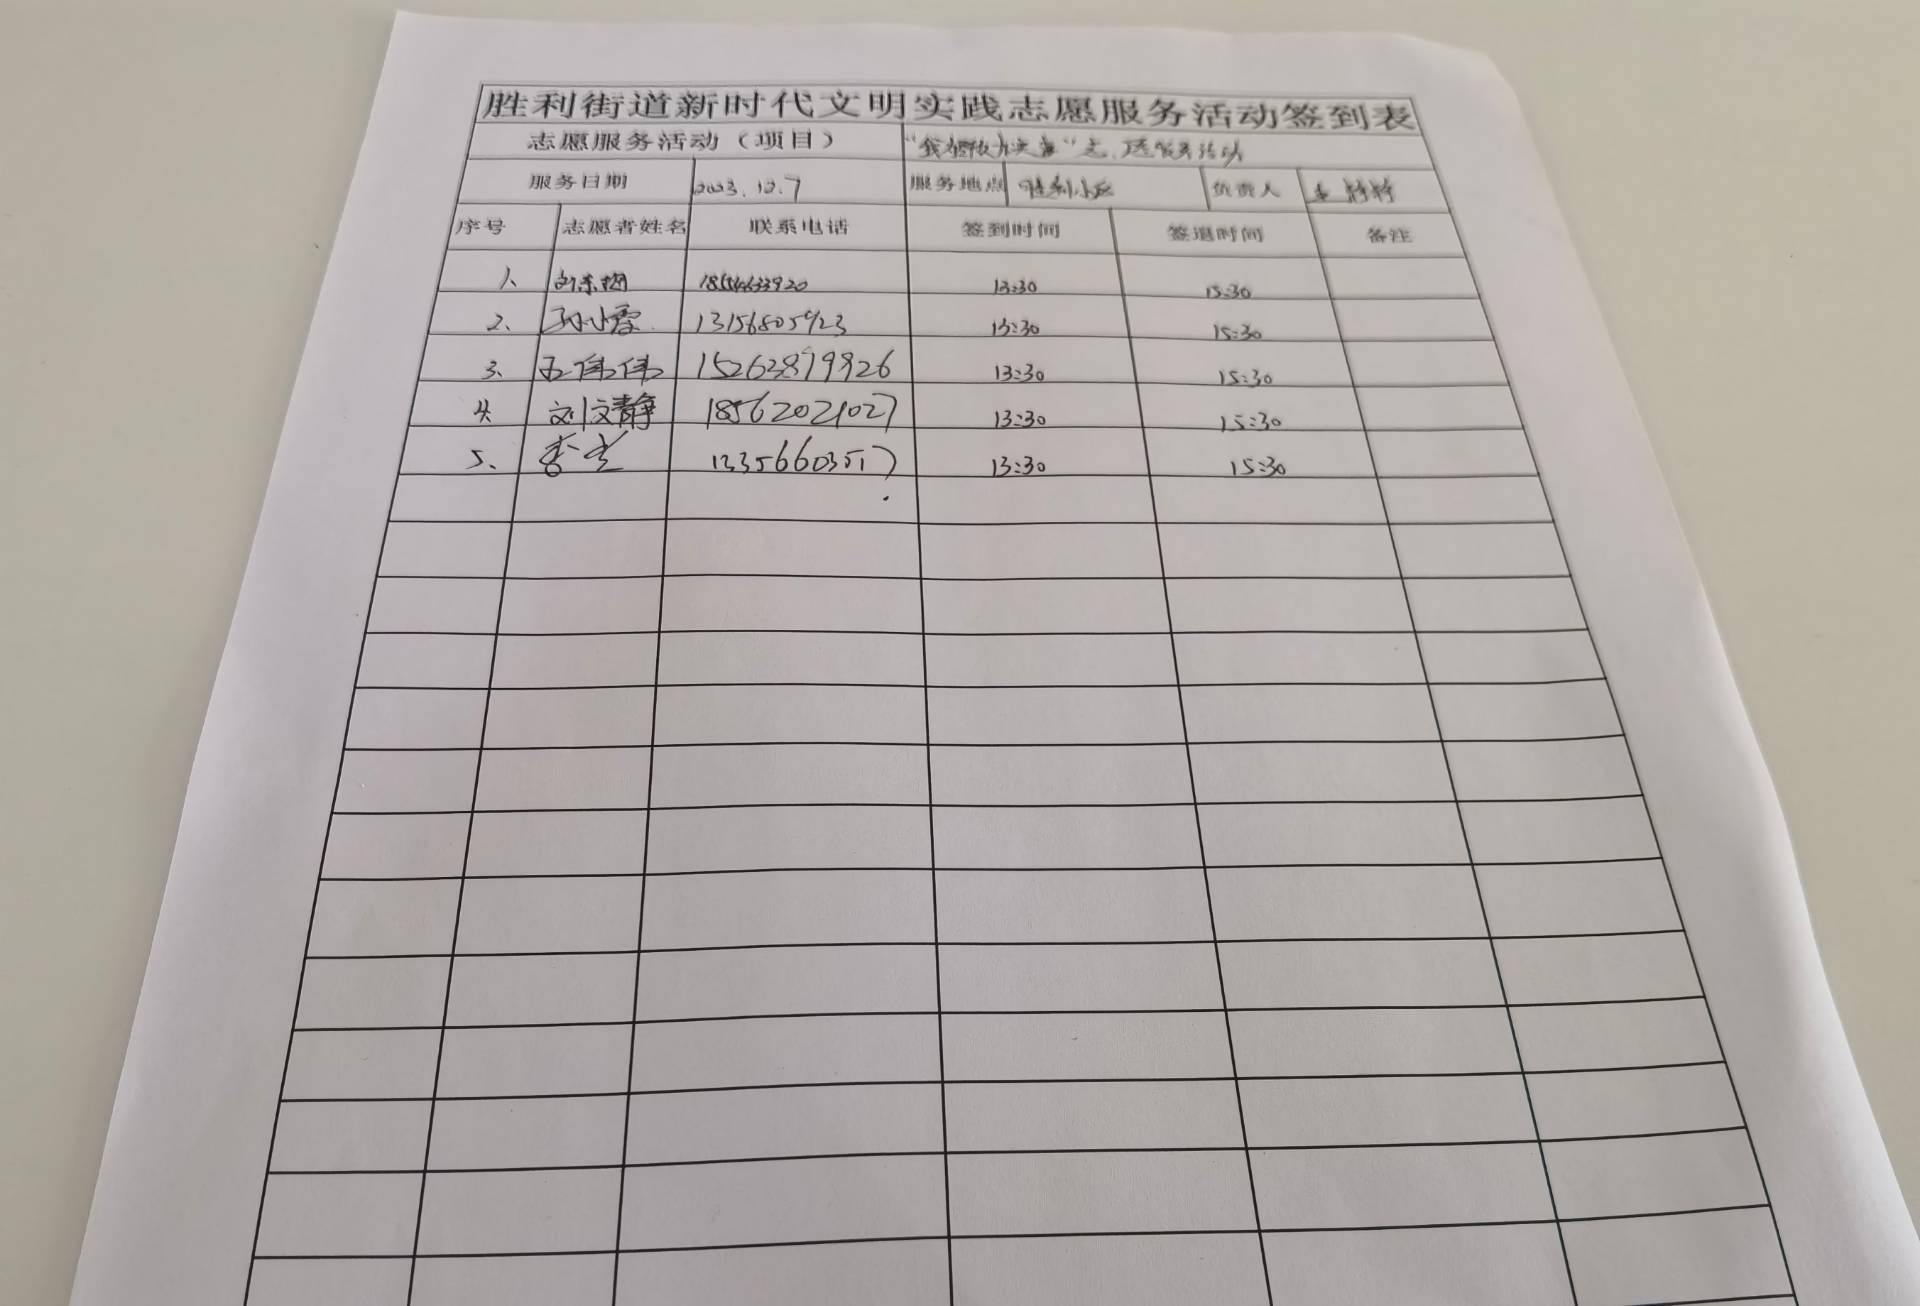 胜利街道新时代文明实践志愿服务活动签到表
志愿服务活动（项目） 志愿服务活动
服务日期 2023.12.7 服务地点 胜利小区 负责人
序号 志愿者姓名 联系电话 签到时间 签退时间 备注
1、 13:30 15:30
2、 孙小霞 13156805923 13:30 15:30
3、 王伟伟 15263879926 13:30 15:30
4 刘文静 18562021027 13:30 15:30
5、 13356603517 13:30 15:30